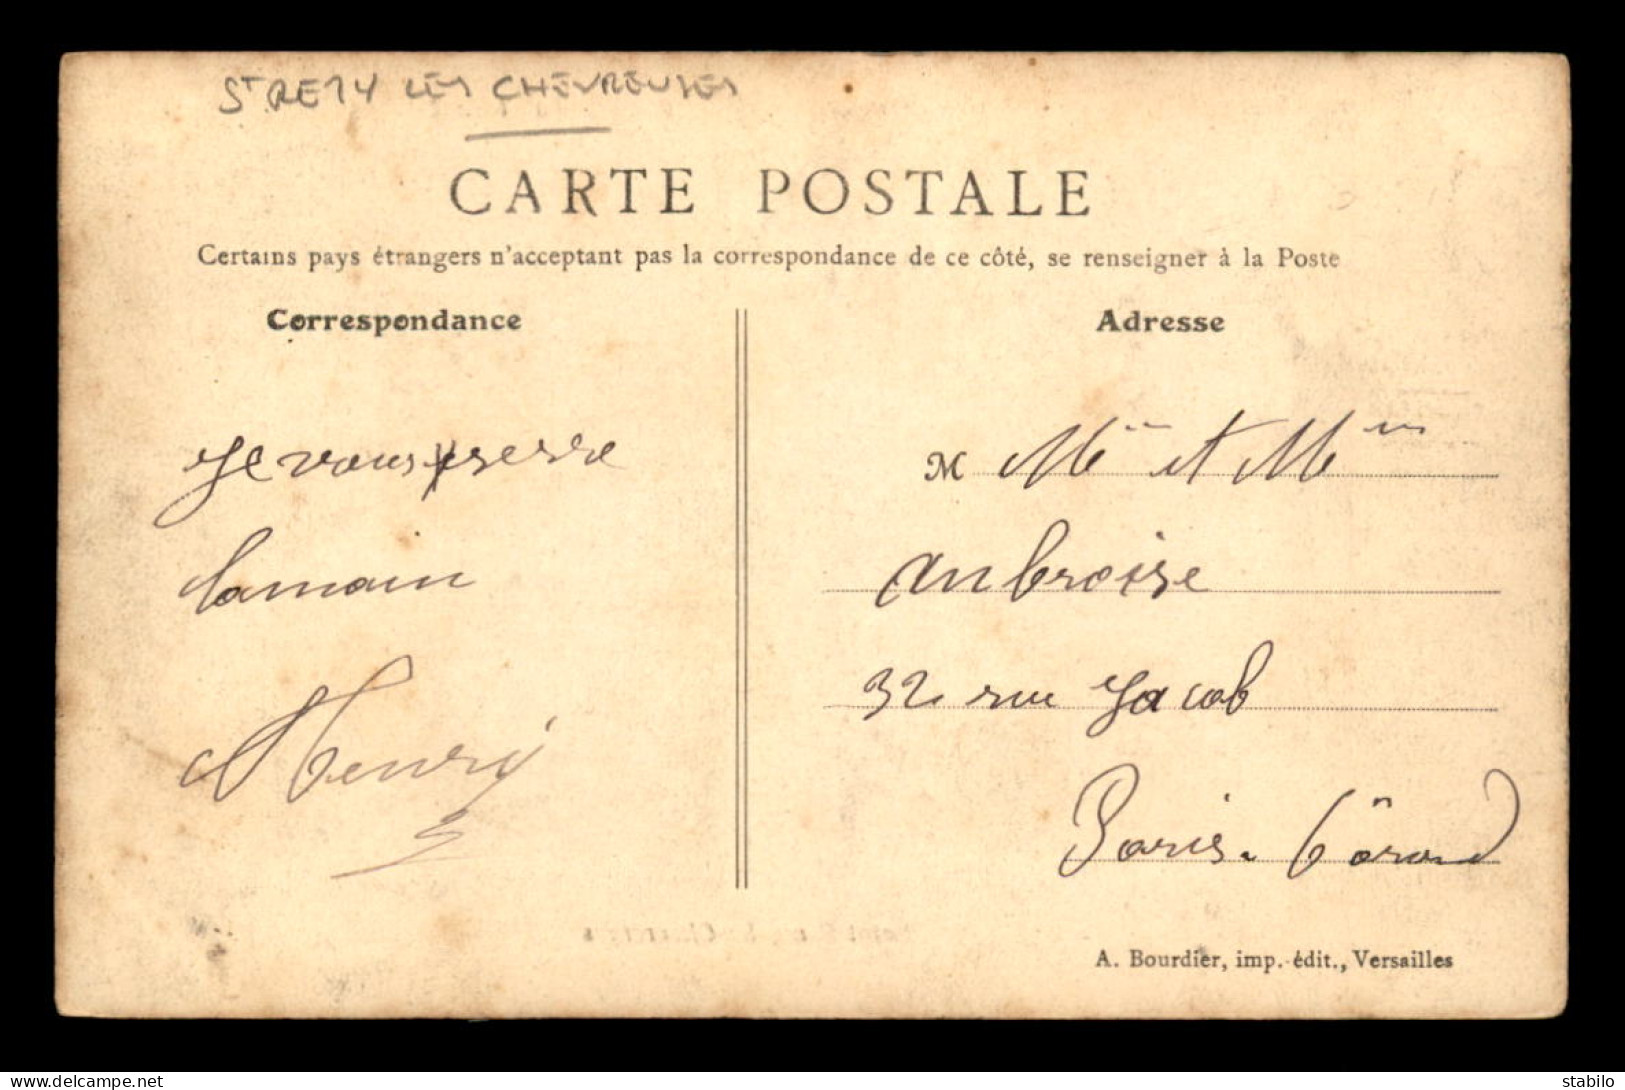 St REMY LES CHEVREUSES
CARTE POSTALE
Certains pays étrangers n'acceptant pas la correspondance de ce côté, se renseigner à la Poste
Correspondance
Je vous serre
la main
Henry
Adresse
M Mr et Mme
Ambroise
32 rue Jacob
Paris.
A. Bourdier, imp. édit., Versailles
delcampe.net
stabilo